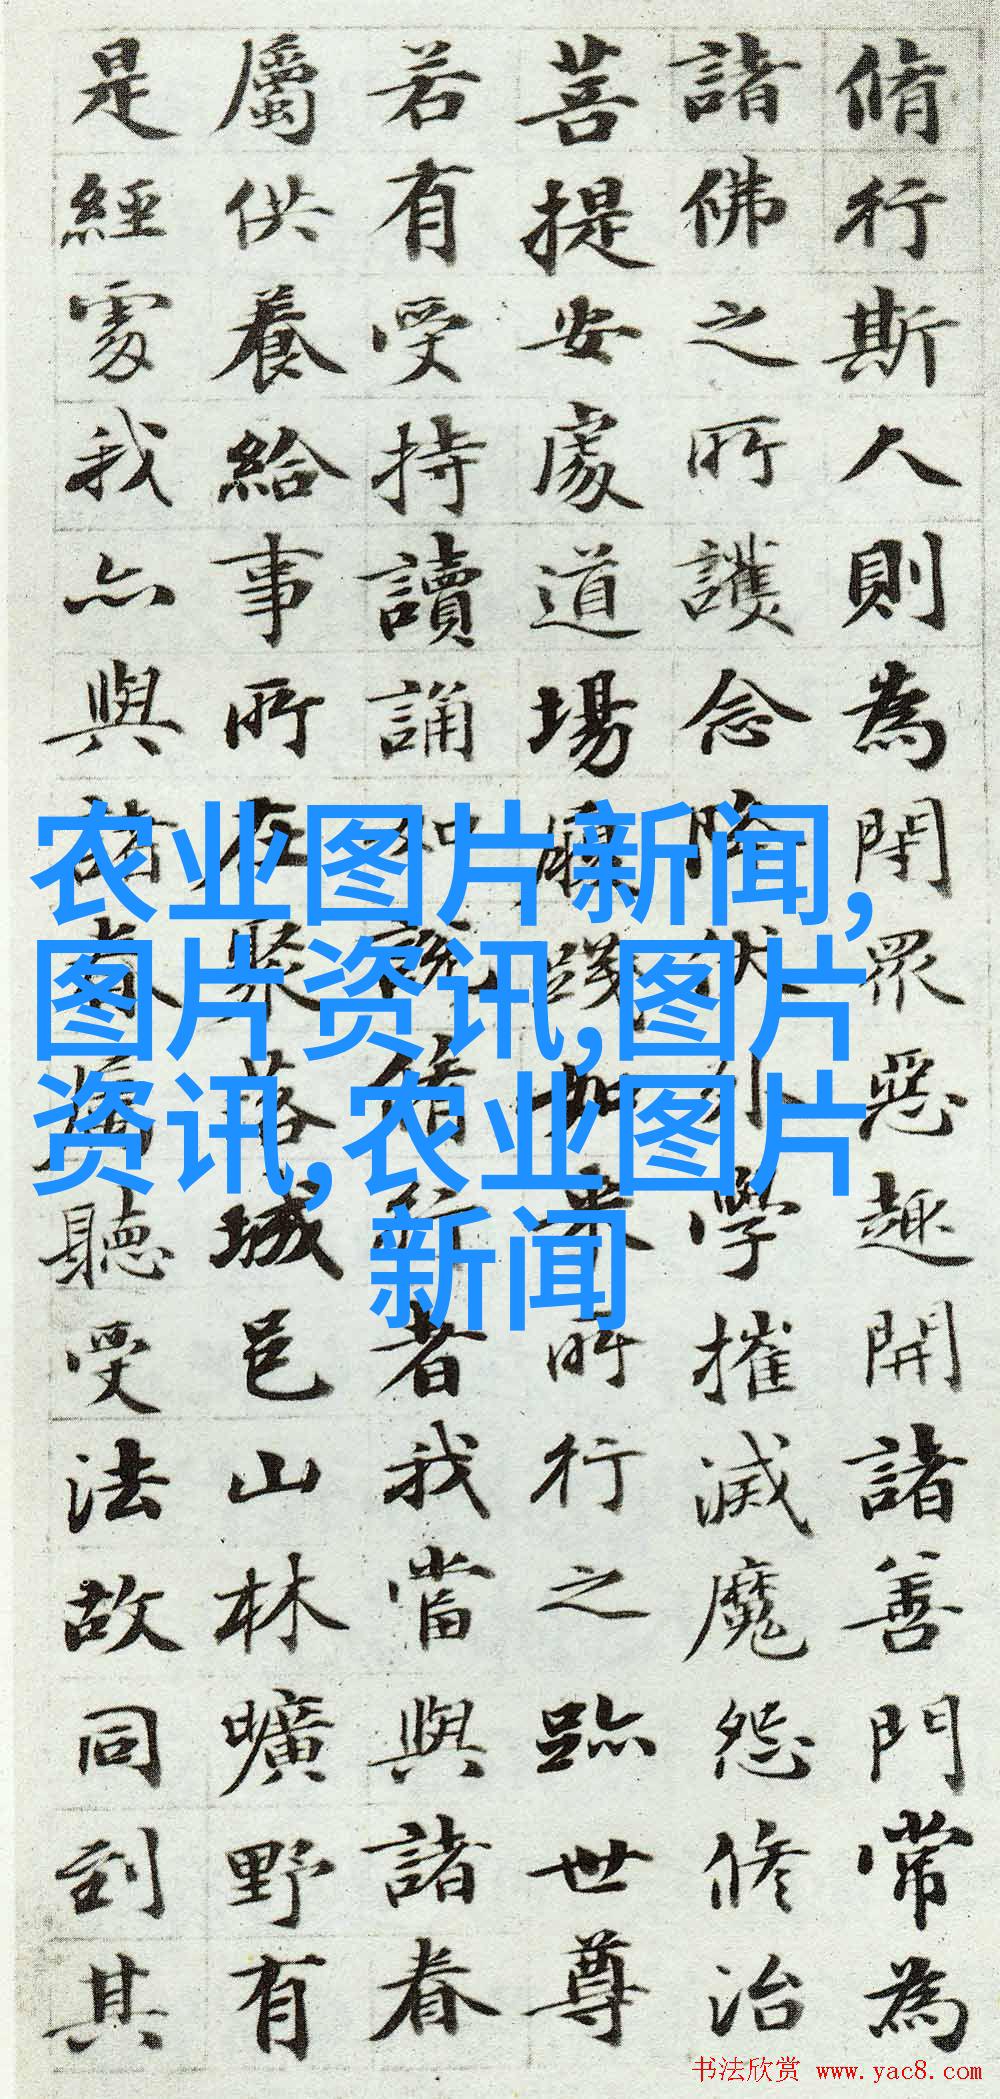 脩行斯人則為閇眾惡趣開諸善門常為
諸佛之所護念降伏外學摧滅魔怨修治
菩提安處道場履踐如來所行之跡世尊
若有受持讀誦如說脩行者我當與諸眷
屬供養給事所在聚落城邑山林曠野有
是經處我亦與諸眷屬聽受法故同到其
农业图片新闻,
图片资讯,图片
资讯,农业图片
新闻
书法欣赏 www.yac8.com